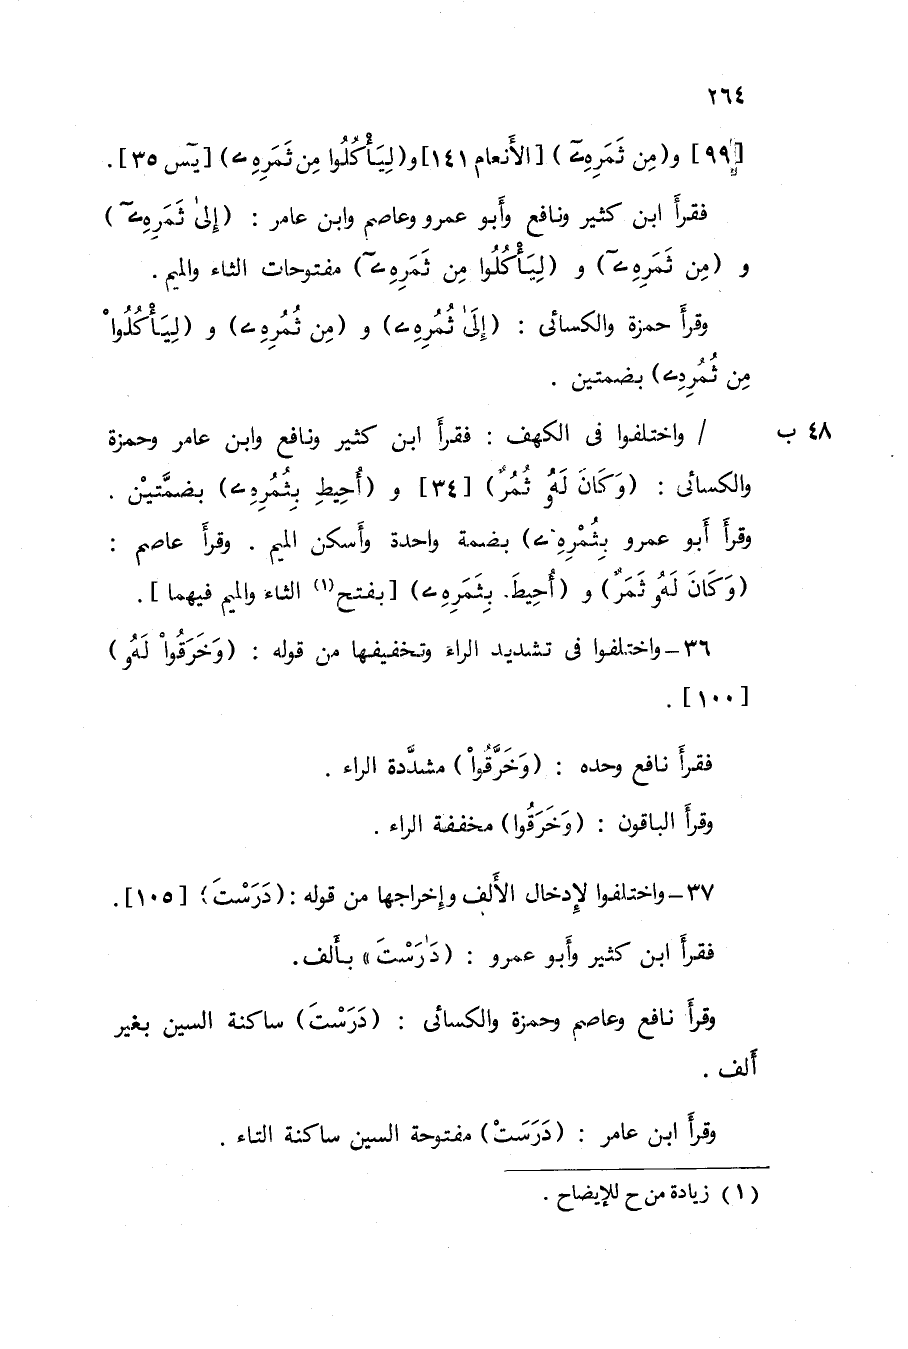 ٢٦٤
[٩٩] و(مِن ثَمَرِهِۦٓ) [الأَنعام ١٤١] و(لِيَأْكُلُوا مِن ثَمَرِهِۦ) [يٓس ٣٥].
فقرأَ ابن كثير ونافع وأَبو عمرو وعاصم وابن عامر : (إِلىٰ ثَمَرِهِۦٓ)
و (مِن ثَمَرِهِۦٓ) و (لِيَأْكُلُوا مِن ثَمَرِهِۦٓ) مفتوحات الثاء والميم .
وقرأَ حمزة والكسائى : (إِلَىٰ ثُمُرِهِۦ) و (مِن ثُمُرِهِۦ) و (لِيَأْكُلُواْ
مِن ثُمُرِهِۦ) بضمتين .
٤٨ ب / واختلفوا فى الكهف : فقرأَ ابن كثير ونافع وابن عامر وحمزة
والكسائى : (وَكَانَ لَهُۥ ثُمُرٌ) [٣٤] و (أُحِيطِ بِثُمُرِهِۦ) بضمَّتيْن .
وقرأَ أَبو عمرو بِثُمْرِهِۦ) بضمة واحدة وأَسكن الميم . وقرأَ عاصم :
(وَكَانَ لَهُۥ ثَمَرٌ) و (أُحِيطَ. بِثَمَرِهِۦ) [بفتح(١) الثاء والميم فيهما ] .
٣٦ ــ واختلفوا فى تشديد الراء وتخفيفها من قوله : (وَخَرَقُواْ لَهُۥ)
[١٠٠] .
فقرأَ نافع وحده : (وَخَرَّقُواْ) مشدَّدة الراء .
وقرأَ الباقون : (وَخَرَقُوا) مخففة الراء .
٣٧ ــ واختلفوا لإِدخال الأَلف وإخراجها من قوله : (دَرَسْتَ) [١٠٥].
فقرأَ ابن كثير وأَبو عمرو : (دَٰرَسْتَ » بأَلف.
وقرأَ نافع وعاصم وحمزة والكسائى : (دَرَسْتَ) ساكنة السين بغير
أَلف .
وقرأَ ابن عامر : (دَرَسَتْ) مفتوحة السين ساكنة التاء .
(١) زيادة من ح للإيضاح .